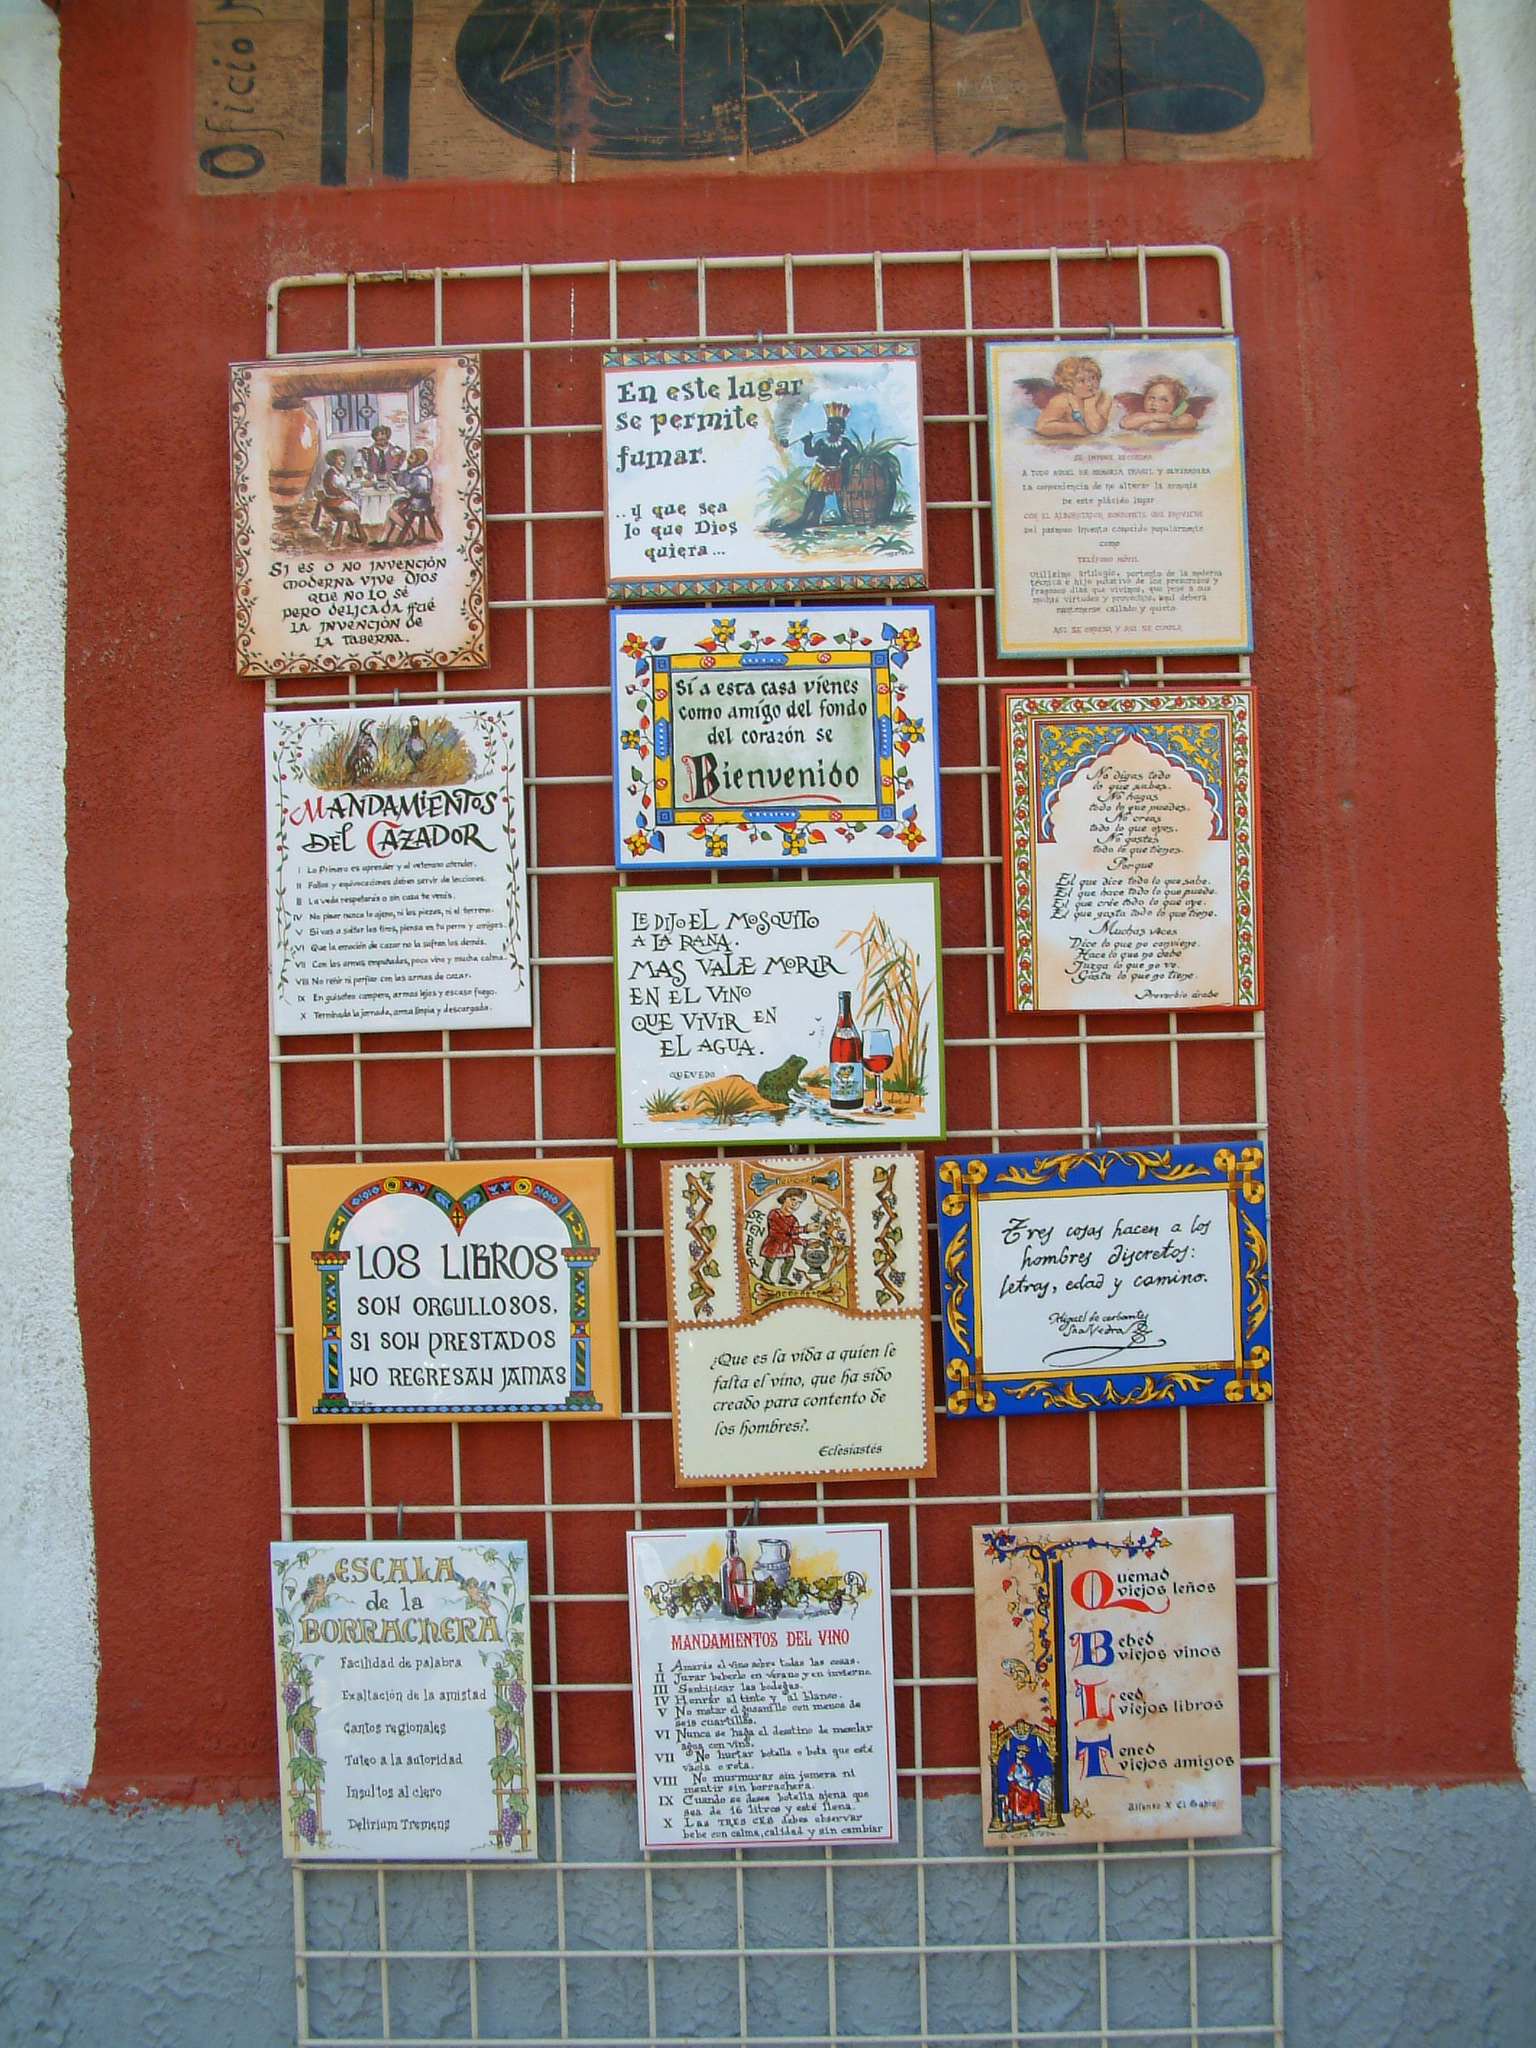 Oficio
SI ES O NO INVENCIÓN
MODERNA VIVE DIOS
QUE NO LO SÉ
PERO DELICADA FUÉ
LA INVENCIÓN DE
LA TABERNA.
En este lugar
se permite
fumar.
..y que sea
lo que Dios
quiera...
SE IMPONE RECORDAR
A TODO AQUEL DE MEMORIA FRÁGIL Y OLVIDADIZA
La conveniencia de no alterar la armonía
De este plácido lugar
CON EL ALBOROTADOR SONSONETE QUE PROVIENE
Del pasmoso invento conocido popularmente
como
TELÉFONO MÓVIL
Utilísimo artilugio, portento de la moderna
técnica e hijo putativo de los presurosos y
fragosos días que vivimos, que pese a sus
muchas virtudes y provechos, aquí deberá
mantenerse callado y quieto.
ASI SE ORDENA Y ASI SE CUMPLA
MANDAMIENTOS
DEL CAZADOR
I Lo Primero es aprender y al veterano atender.
II Fallos y equivocaciones deben servir de lecciones.
III La veda respetarás o sin caza te verás.
IV No pisar nunca lo ajeno, ni las piezas, ni el terreno.
V Si vas a soltar los tiros, piensa en tu perro y amigos.
VI Que la emoción de cazar no la sufran los demás.
VII Con las armas empuñadas, poco vino y mucha calma.
VIII No reñir ni porfiar con las armas de cazar.
IX En guisoteo campero, armas lejos y escaso fuego.
X Terminada la jornada, arma limpia y descargada.
Sí a esta casa vienes
como amigo del fondo
del corazón se
Bienvenido
No digas todo
lo que sabes.
No hagas
todo lo que puedes.
No creas
todo lo que oyes.
No gastes
todo lo que tienes.
Porque
El que dice todo lo que sabe.
El que hace todo lo que puede.
El que crée todo lo que oye.
El que gasta todo lo que tiene.
Muchas veces
Dice lo que no conviene.
Hace lo que no debe
Juzga lo que no ve.
Gasta lo que no tiene.
Proverbio árabe
LE DIJO EL MOSQUITO
A LA RANA.
MAS VALE MORIR
EN EL VINO
QUE VIVIR EN
EL AGUA.
QUEVEDO
LOS LIBROS
SON ORGULLOSOS,
SI SON PRESTADOS
NO REGRESAN JAMAS
¿Que es la vida a quien le
falta el vino, que ha sido
creado para contento de
los hombres?.
Eclesiastés
Tres cosas hacen a los
hombres discretos:
letras, edad y camino.
Miguel de cerbantes
Saavedra
ESCALA
de la
BORRACHERA
Facilidad de palabra
Exaltación de la amistad
Cantos regionales
Tuteo a la autoridad
Insultos al clero
Delirium Tremens
MANDAMIENTOS DEL VINO
I Amarás el vino sobre todas las cosas.
II Jurar beberlo en verano y en invierno.
III Santificar las bodegas.
IV Honrar al tinto y al blanco.
V No matar el gusanillo con menos de
seis cuartillos.
VI Nunca se haga el desatino de mezclar
agua con vino.
VII No hurtar botella o bota que esté
vacia o rota.
VIII No murmurar sin jumera ni
mentir sin borrachera.
IX Cuando se desee botella ajena que
sea de 16 litros y esté llena.
X Las TRES CES debes observar
bebe con calma, calidad y sin cambiar
Quemad
viejos leños
Bebed
viejos vinos
Leed
viejos libros
Tened
viejos amigos
Alfonso X El Sabio